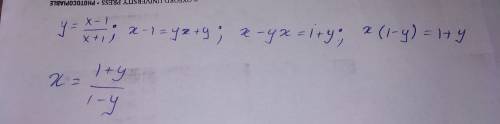 OXFORD UNIVERSITY PRESS • PHOTOCOPIABLE
y = (x-1)/(x+1); x-1 = yx+y; x-yx = 1+y; x(1-y) = 1+y
x = (1+y)/(1-y)